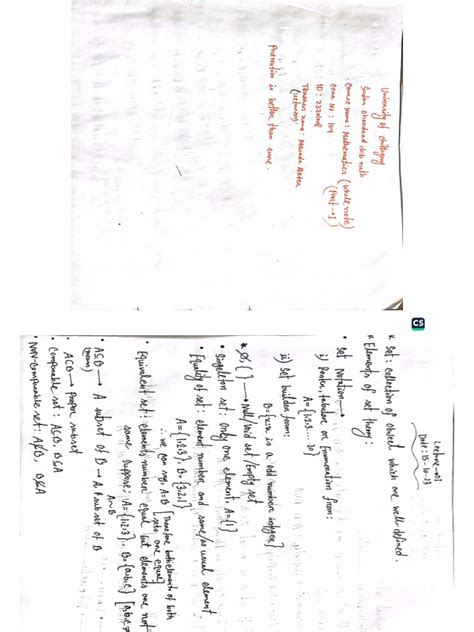 University of chittagong
Course name: Mathematics (whole note)
(Part-01)
Course no: 104
ID:
Teacher name:
(lecturer)
Prevention is better than cure.
CS
Lecture-01
Date: 15-
* Set: collection of object which are well-defined.
* Elements of set theory:
• Set Notation→
i) Roster, tabular or Enumeration form:
A={1,2,3....10}
ii) Set builder form:
B={x:x is a odd number integer}
* Ø, { } → Null/void set/Empty set
• Singleton set: only one element, A={1}
• Equality of set: element number and same/as usual element.
A={1,2,3}, B={3,2,1}
∴ we can say, A=B [Therefore both elements of both sets are equal]
• Equivalent set: elements number equal but elements are not
same suppose: A={1,2,3}, B={a,b,c}
A~B
• A⊆B → A subset of B
ACB → proper subset
• Comparable set: A⊆B, B⊆A
• NON-Comparable set: A⊈B, B⊈A